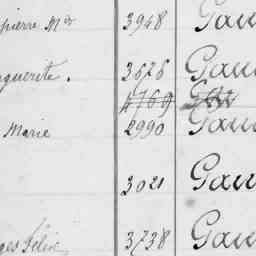 pierre Mie 3948 Gau
guerite. 3878 Gau
4769
Marie 2990 Gau
3021 Gau
ges Félix 3738 Gau